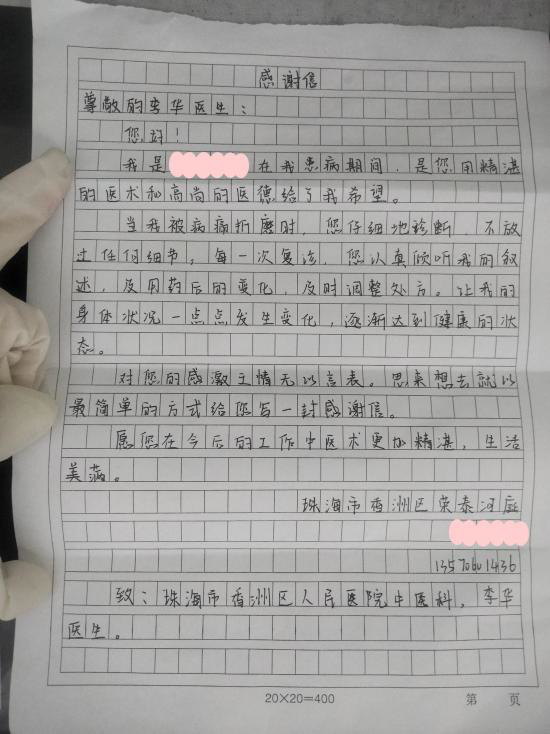 感谢信
尊敬的李华医生：
您好！
我是 在我患病期间，是您用精湛
的医术和高尚的医德给了我希望。
当我被病痛折磨时，您仔细地诊断，不放
过任何细节，每一次复诊，您认真倾听我的叙
述，及用药后的变化，及时调整处方。让我的
身体状况一点点发生变化，逐渐达到健康的状
态。
对您的感激之情无以言表。思来想去就以
最简单的方式给您写一封感谢信。
愿您在今后的工作中医术更加精湛，生活
美满。
珠海市香洲区荣泰河庭
致：珠海市香洲区人民医院中医科，李华
医生。
20×20=400 第 页